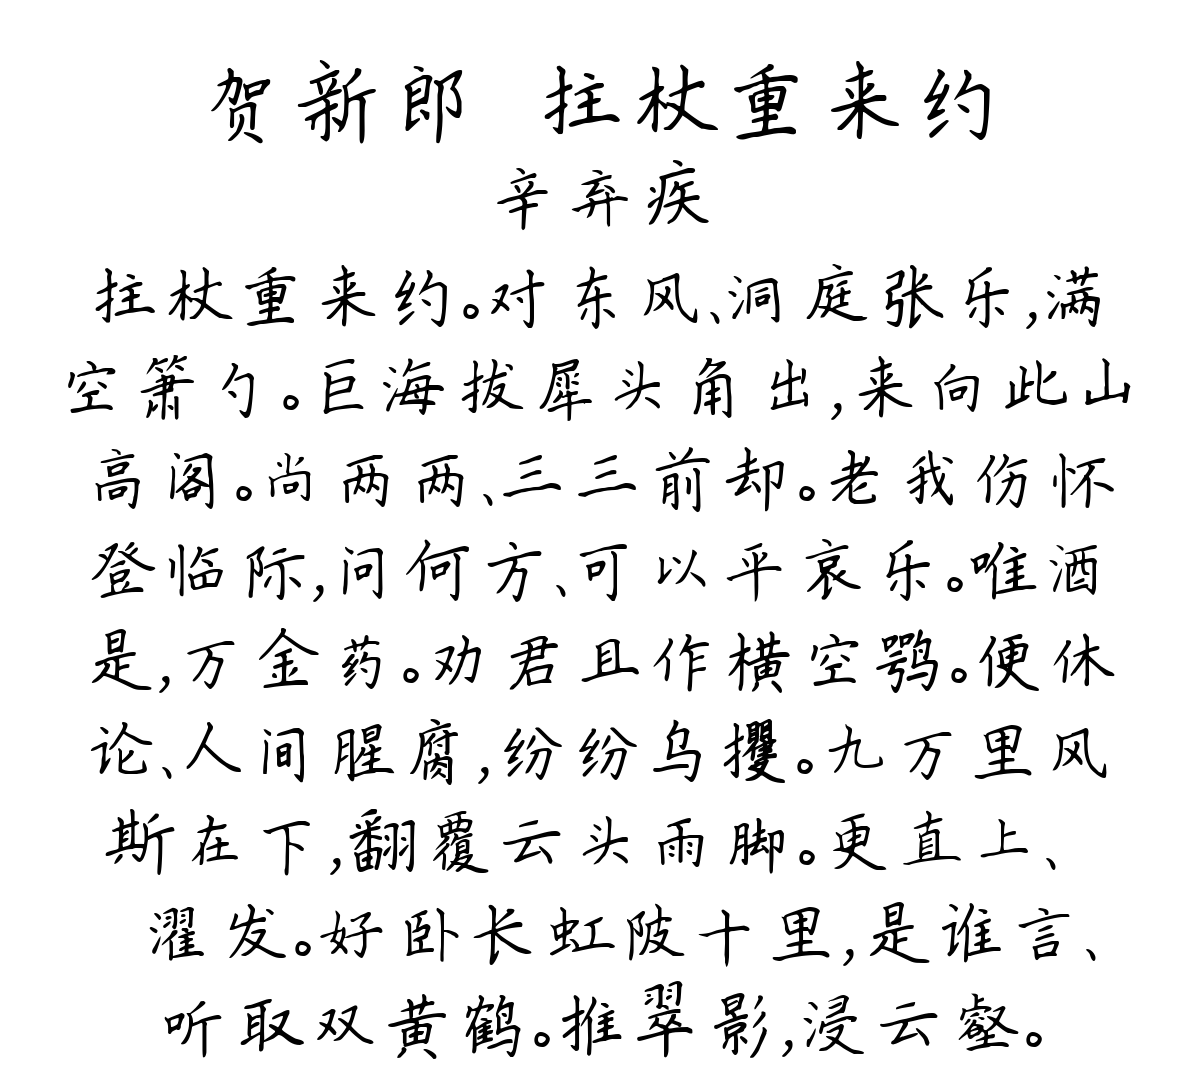 贺新郎 拄杖重来约
辛弃疾
拄杖重来约。对东风、洞庭张乐，满
空箫勺。巨海拔犀头角出，来向此山
高阁。尚两两、三三前却。老我伤怀
登临际，问何方、可以平哀乐。唯酒
是，万金药。劝君且作横空鹗。便休
论、人间腥腐，纷纷乌攫。九万里风
斯在下，翻覆云头雨脚。更直上、
濯发。好卧长虹陂十里，是谁言、
听取双黄鹤。推翠影，浸云壑。